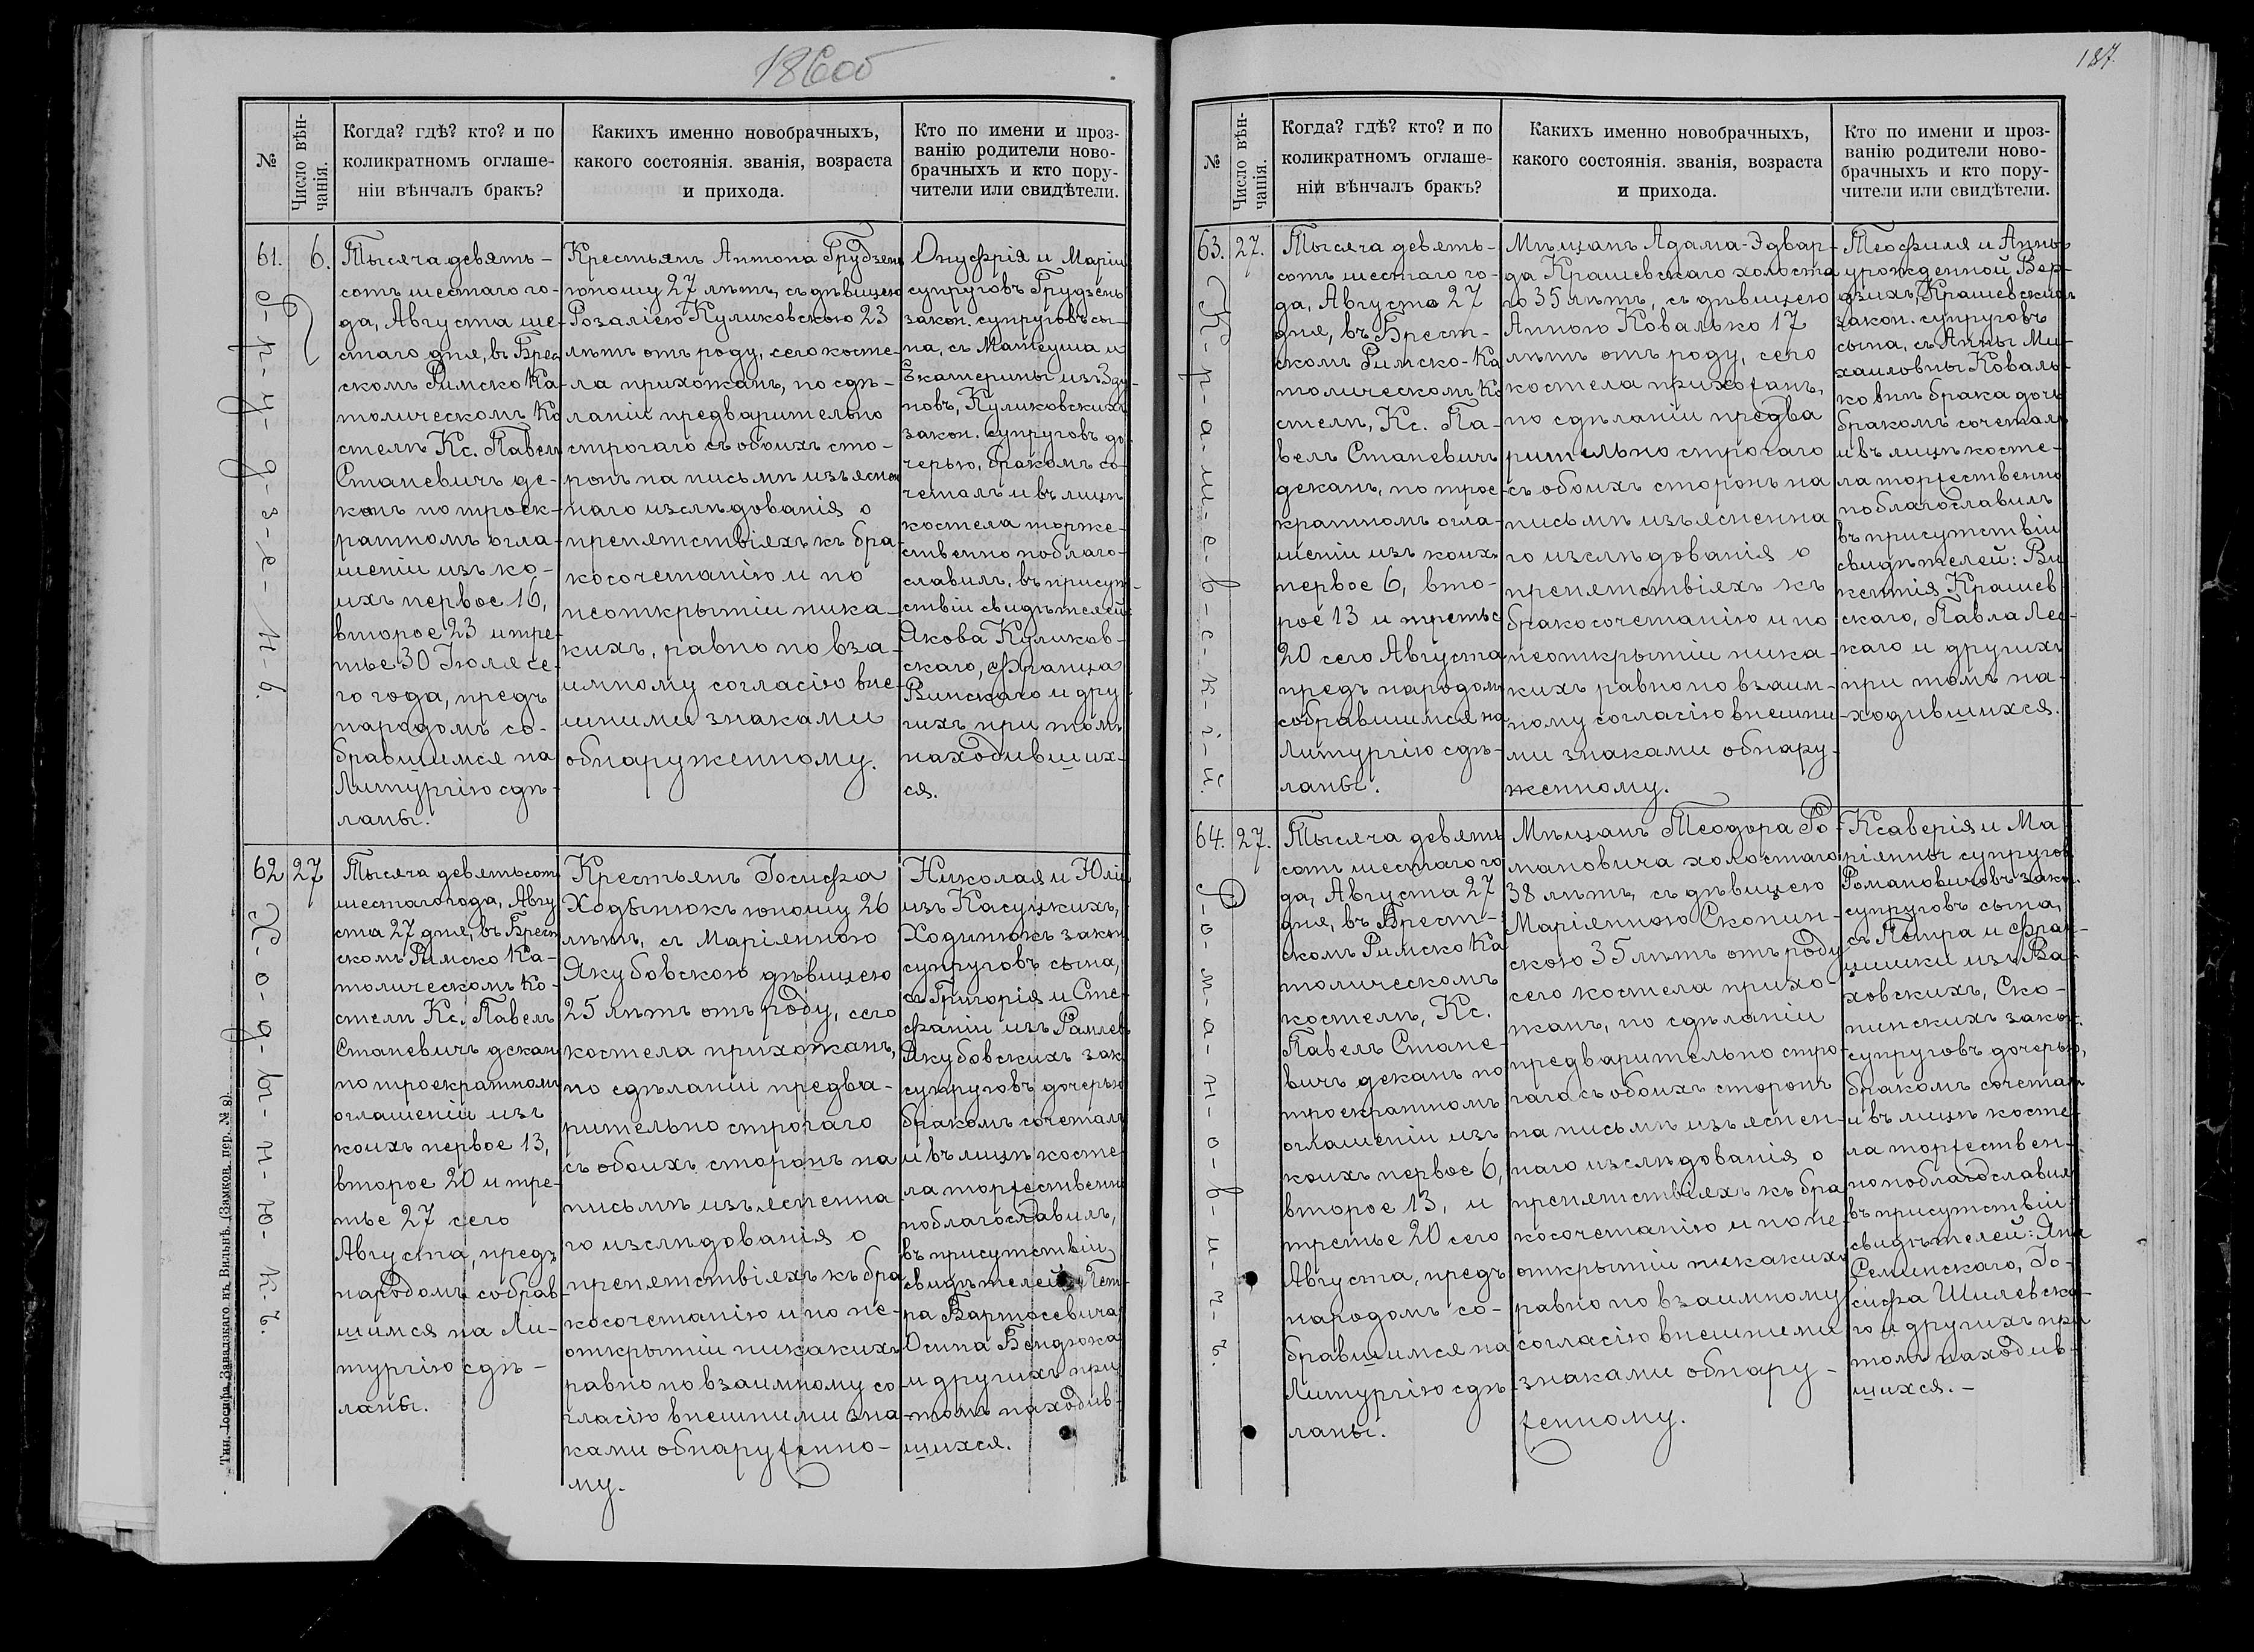 186об
№
Число вѣн-
чанія.
Когда? гдѣ? кто? и по
коликратномъ оглаше-
ніи вѣнчалъ бракъ?
Какихъ именно новобрачныхъ,
какого состоянія. званія, возраста
и прихода.
Кто по имени и проз-
ванію родители ново-
брачныхъ и кто пору-
чители или свидѣтели.
61.
6.
Г-р-у-д-з-е-н-ь.
Тысяча девять-
сотъ шестаго го-
да, Августа ше-
стаго дня, въ Брес
скомъ Римско Ка-
толическомъ Ко
стелѣ Кс. Павелъ
Станевичъ де-
канъ по троек-
ратномъ огла-
шеніи изъ ко-
ихъ первое 16,
второе 23 и тре-
тье 30 Іюля се-
го года, предъ
народомъ со-
бравшимся на
Литургію сдѣ-
ланы.
Крестьянъ Антона Грудзень
юношу 27 лѣтъ, съ дѣвицею
Розаліею Куликовскою 23
лѣтъ отъ роду, сего косте-
ла прихожанъ, по сдѣ-
ланіи предварительно
строгаго съ обоихъ сто-
ронъ на письмѣ изъяснен
наго изслѣдованія о
препятствіяхъ къ бра
косочетанію и по
неоткрытіи ника-
кихъ, равно по вза-
имному согласію вне-
шними знаками
обнаруженному.
Онуфрія и Маріи
супруговъ Грудзень
закон. супруговъ сы-
на, съ Матеуша и
Екатерины изъ Зду-
новъ, Куликовскихъ
закон. супруговъ до-
черью, бракомъ со-
четалъ и въ лицѣ
костела торже-
ственно поблаго-
славилъ, въ присут-
ствіи свидѣтелей:
Якова Куликов-
скаго, Франца
Винскаго и дру
гихъ при томъ
находивших-
ся.
62
27
Х-о-д-ы-н-ю-к-ъ.
Тысяча девятьсотъ
шестаго года, Авгу
ста 27 дня, въ Брест
скомъ Римско Ка-
толическомъ Ко-
стелѣ Кс. Павелъ
Станевичъ деканъ
по троекратномъ
оглашеніи изъ
коихъ первое 13,
второе 20 и тре-
тье 27 сего
Августа, предъ
народомъ собрав
шимся на Ли-
тургію сдѣ-
ланы.
Крестьянъ Іосифа
Ходынюкъ юношу 26
лѣтъ, съ Маріянною
Якубовскою дѣвицею
25 лѣтъ отъ роду, сего
костела прихожанъ,
по сдѣланіи предва-
рительно строгаго
съ обоихъ сторонъ на
письмѣ изъясненна
го изслѣдованія о
препятствіяхъ къ бра
косочетанію и по не-
открытіи никакихъ
равно по взаимному со
гласію внешними зна
ками обнаруженно-
му.
Николая и Юліи
изъ Касуцкихъ,
Ходинюкъ закон
супруговъ сына,
съ Григорія и Сте-
фаніи изъ Рамлевъ
Якубовскихъ зак.
супруговъ дочерью
бракомъ сочеталъ
и въ лицѣ косте
ла торжественно
поблагославилъ,
въ присутствіи
свидѣтелей: Пет-
ра Вартосевича
Осипа Бендюка
и другихъ при
томъ находив-
шихся.
Тип. Іосифа Завадзкаго въ Вильнѣ. (Замков. пер. № 8).
187.
№
Число вѣн-
чанія.
Когда? гдѣ? кто? и по
коликратномъ оглаше-
ніи вѣнчалъ бракъ?
Какихъ именно новобрачныхъ,
какого состоянія. званія, возраста
и прихода.
Кто по имени и проз-
ванію родители ново-
брачныхъ и кто пору-
чители или свидѣтели.
63.
27.
К-р-а-ш-е-в-с-к-і-й.
Тысяча девять-
сотъ шестаго го-
да, Августа 27
дня, въ Брест-
скомъ Римско-Ка
толическомъ Ко
стелѣ, Кс. Па-
велъ Станевичъ
деканъ, по трое-
кратномъ огла-
шеніи изъ коихъ
первое 6, вто-
рое 13 и третье
20 сего Августа
предъ народомъ
собравшимся на
Литургію сдѣ-
ланы.
Мѣщанъ Адама-Эдвар-
да Крашевскаго холоста
го 35 лѣтъ, съ дѣвицею
Анною Ковалько 17
лѣтъ отъ роду, сего
костела прихожанъ,
по сдѣланіи предва
рительно строгаго
съ обоихъ сторонъ на
письмѣ изъясненна
го изслѣдованія о
препятствіяхъ къ
бракосочетанію и по
неоткрытіи ника-
кихъ равно по взаим-
ному согласію внешни
ми знаками обнару-
женному.
Теофиля и Анны
урожденной Вер-
дзихъ, Крашевскихъ
закон. супруговъ
сына, съ Анны Ми-
хаиловны Коваль-
ко внѣ брака дочь
бракомъ сочеталъ
и въ лицѣ косте-
ла торжественно
поблагославилъ
въ присутствіи
свидѣтелей: Ви
кентія Крашев
скаго, Павла Лес-
каго и другихъ
при томъ на-
ходившихся.
64.
27.
Р-о-м-а-н-о-в-и-ч-ъ.
Тысяча девять
сотъ шестаго го
да, Августа 27
дня, въ Брест-
скомъ Римско Ка
толическомъ
костелѣ, Кс.
Павелъ Стане-
вичъ деканъ по
троекратномъ
оглашеніи изъ
коихъ первое 6,
второе 13, и
третье 20 сего
Августа, предъ
народомъ со-
бравшимся на
Литургію сдѣ
ланы.
Мѣщанъ Теодора Ро-
мановича холостаго
38 лѣтъ, съ дѣвицею
Маріянною Скопин-
скою 35 лѣтъ отъ роду
сего костела прихо-
жанъ, по сдѣланіи
предварительно стро-
гаго съ обоихъ сторонъ
на письмѣ изъяснен-
наго изслѣдованія о
препятствіяхъ къ бра
косочетанію и по не-
открытіи никакихъ
равно по взаимному
согласію внешними
знаками обнару-
женному.
Ксаверія и Ма
ріянны супругов
Романовичовъ закон.
супруговъ сына,
съ Петра и Фран-
цишки изъ Ва-
ховскихъ, Ско-
пинскихъ закон.
супруговъ дочерью,
бракомъ сочеталъ
и въ лицѣ косте-
ла торжествен-
но поблагославилъ
въ присутствіи
свидѣтелей: Яна
Семинскаго, Іо-
сифа Шилевска-
го и другихъ при
томъ находив-
шихся.-